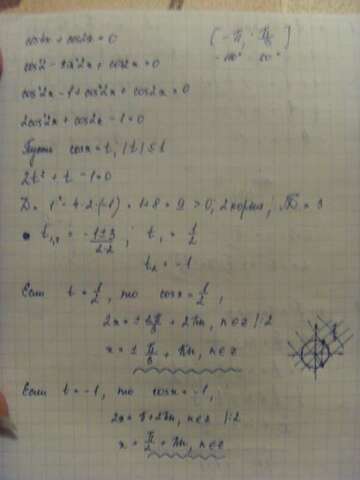 cos4x + cos2x = 0
[-π; π/3]
-180° 60°
cos²2 - sin²2x + cos2x = 0
cos²2x - 1 + cos²2x + cos2x = 0
2cos²2x + cos2x - 1 = 0
Пусть cosx = t, |t| ≤ 1
2t² + t - 1 = 0
D = 1² - 4·2·(-1) = 1+8 = 9 > 0, 2 корня, √D = 3
t₁,₂ = -1±3/2·2 ; t₁ = 1/2
t₂ = -1
Если t = 1/2, то cosx = 1/2,
2x = ± π/3 + 2πn, n∈z |:2
x = ± π/6 + πn, n∈z
Если t = -1, то cosx = -1,
2x = π + 2πn, n∈z |:2
x = π/2 + πn, n∈z